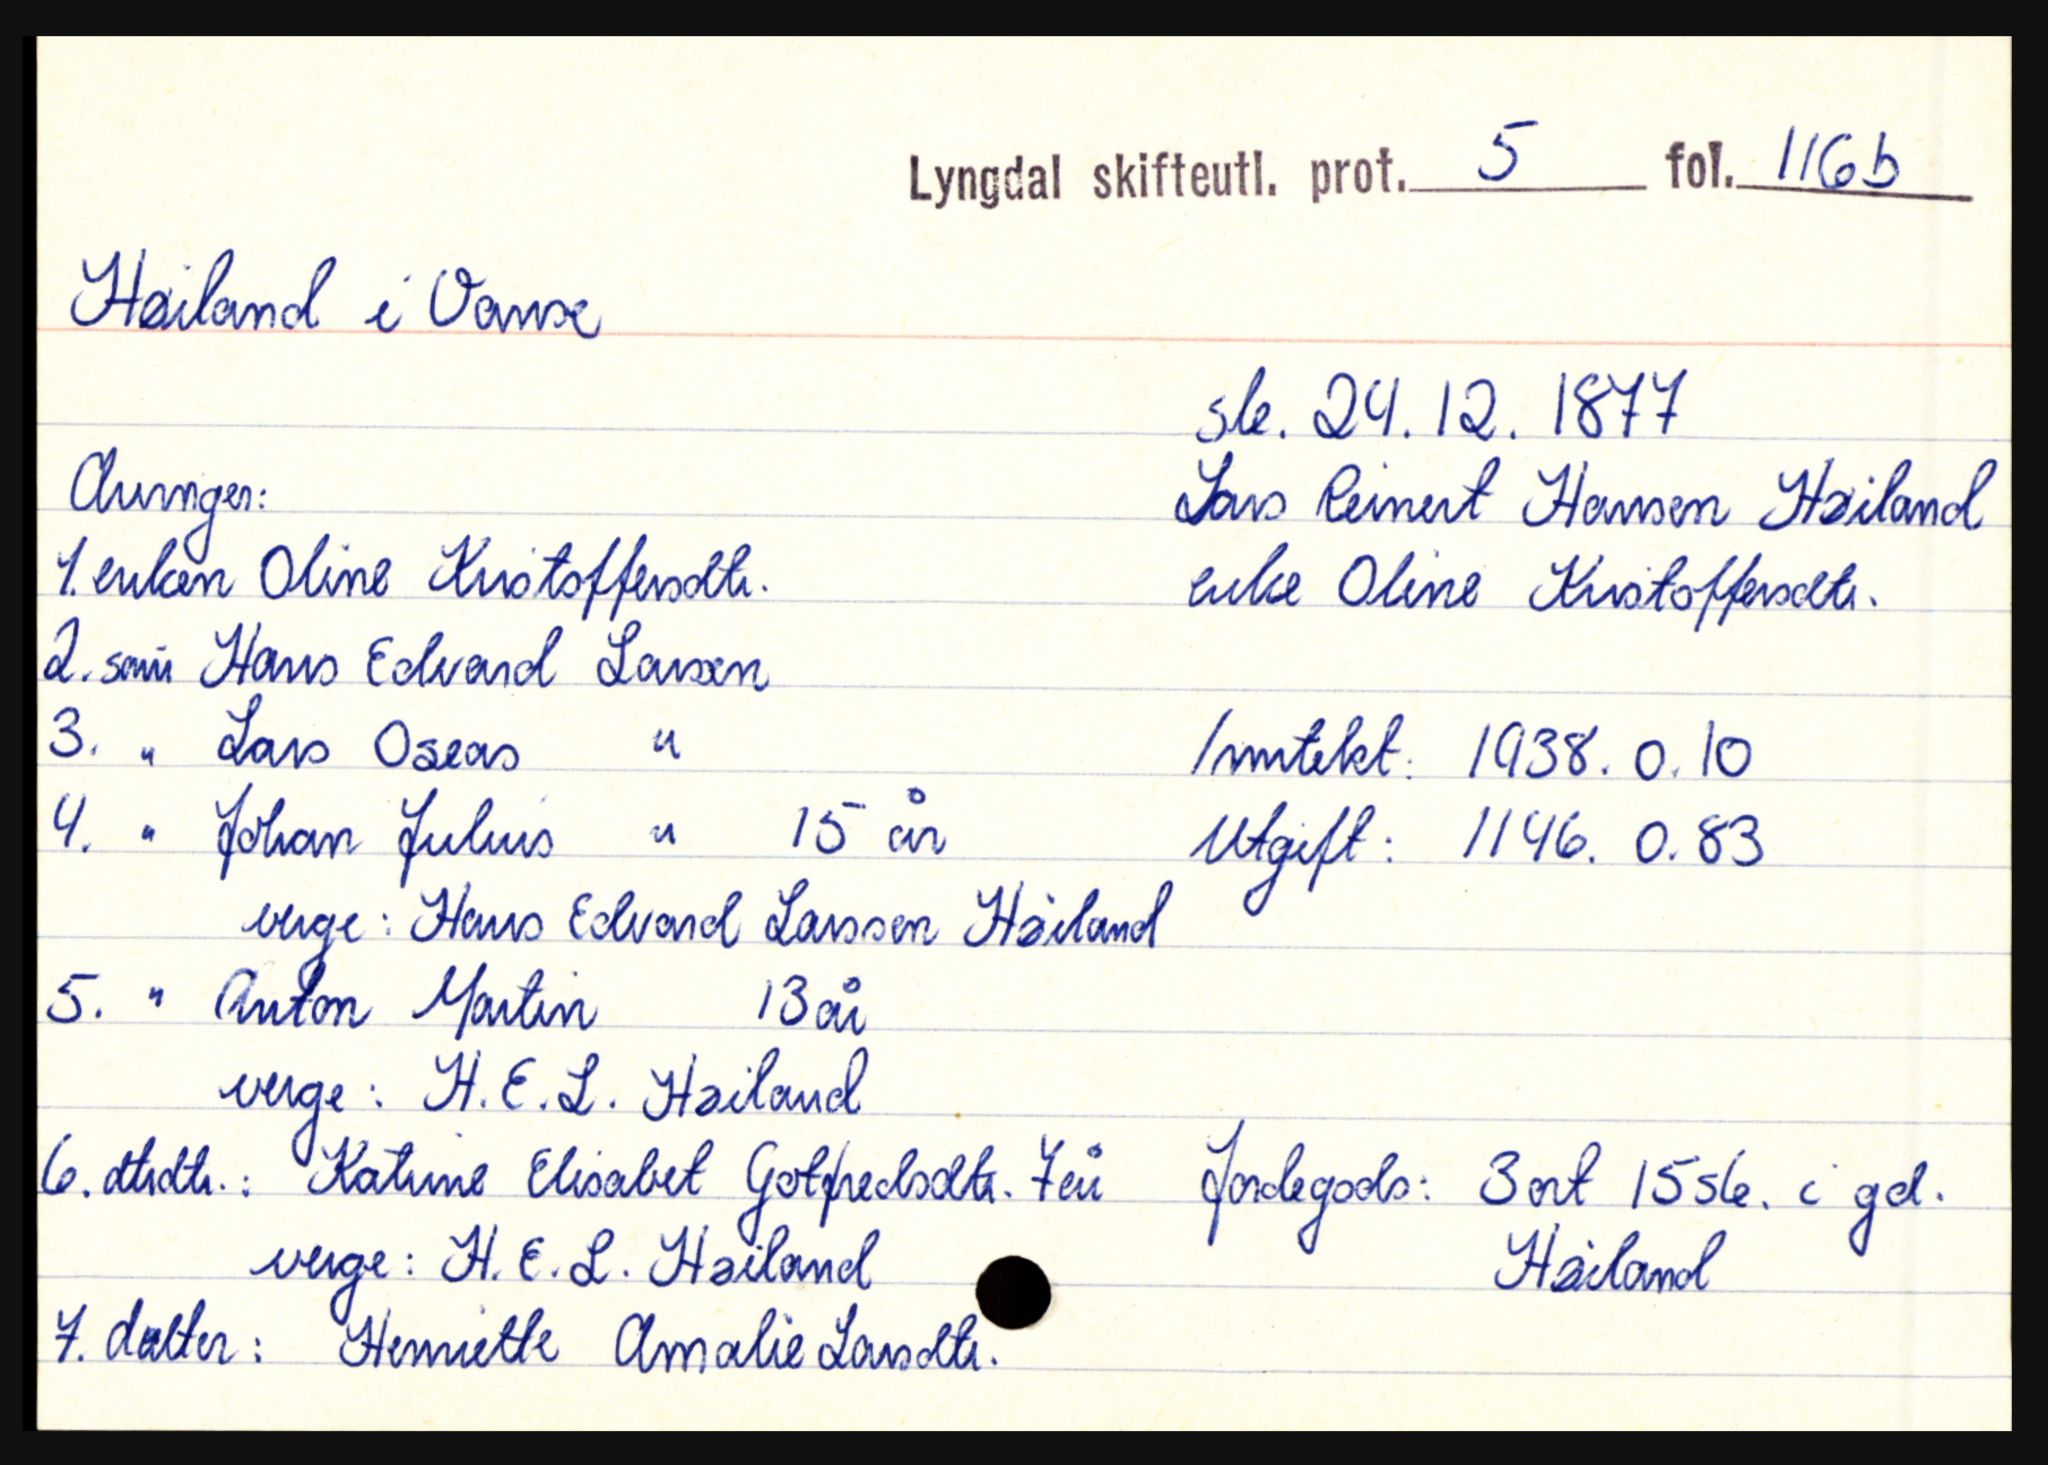 Lyngdal skifteutl. prot. 5 fol. 116b
Høiland i Vanse
sk. 24.12.1877
Arvinger:
Lars Reinert Hansen Høiland
1. enken Oline Kristoffersdtr.
enke Oline Kristoffersdtr.
2. sønn Hans Edvard Larsen
3. " Lars Oseas "
Inntekt: 1938. 0. 10
4. " Johan Julius " 15 år
Utgift: 1146. 0. 83
verge: Hans Edvard Larssen Høiland
5. " Anton Martin 13 år
verge: H. E. L. Høiland
6. dtrdtr.: Katrine Elisabet Gotfredsdtr. 7 år
Jordegods: 3 ort 15 sk. i gd.
verge: H. E. L. Høiland
Høiland
7. datter: Henriette Amalie Larsdtr.